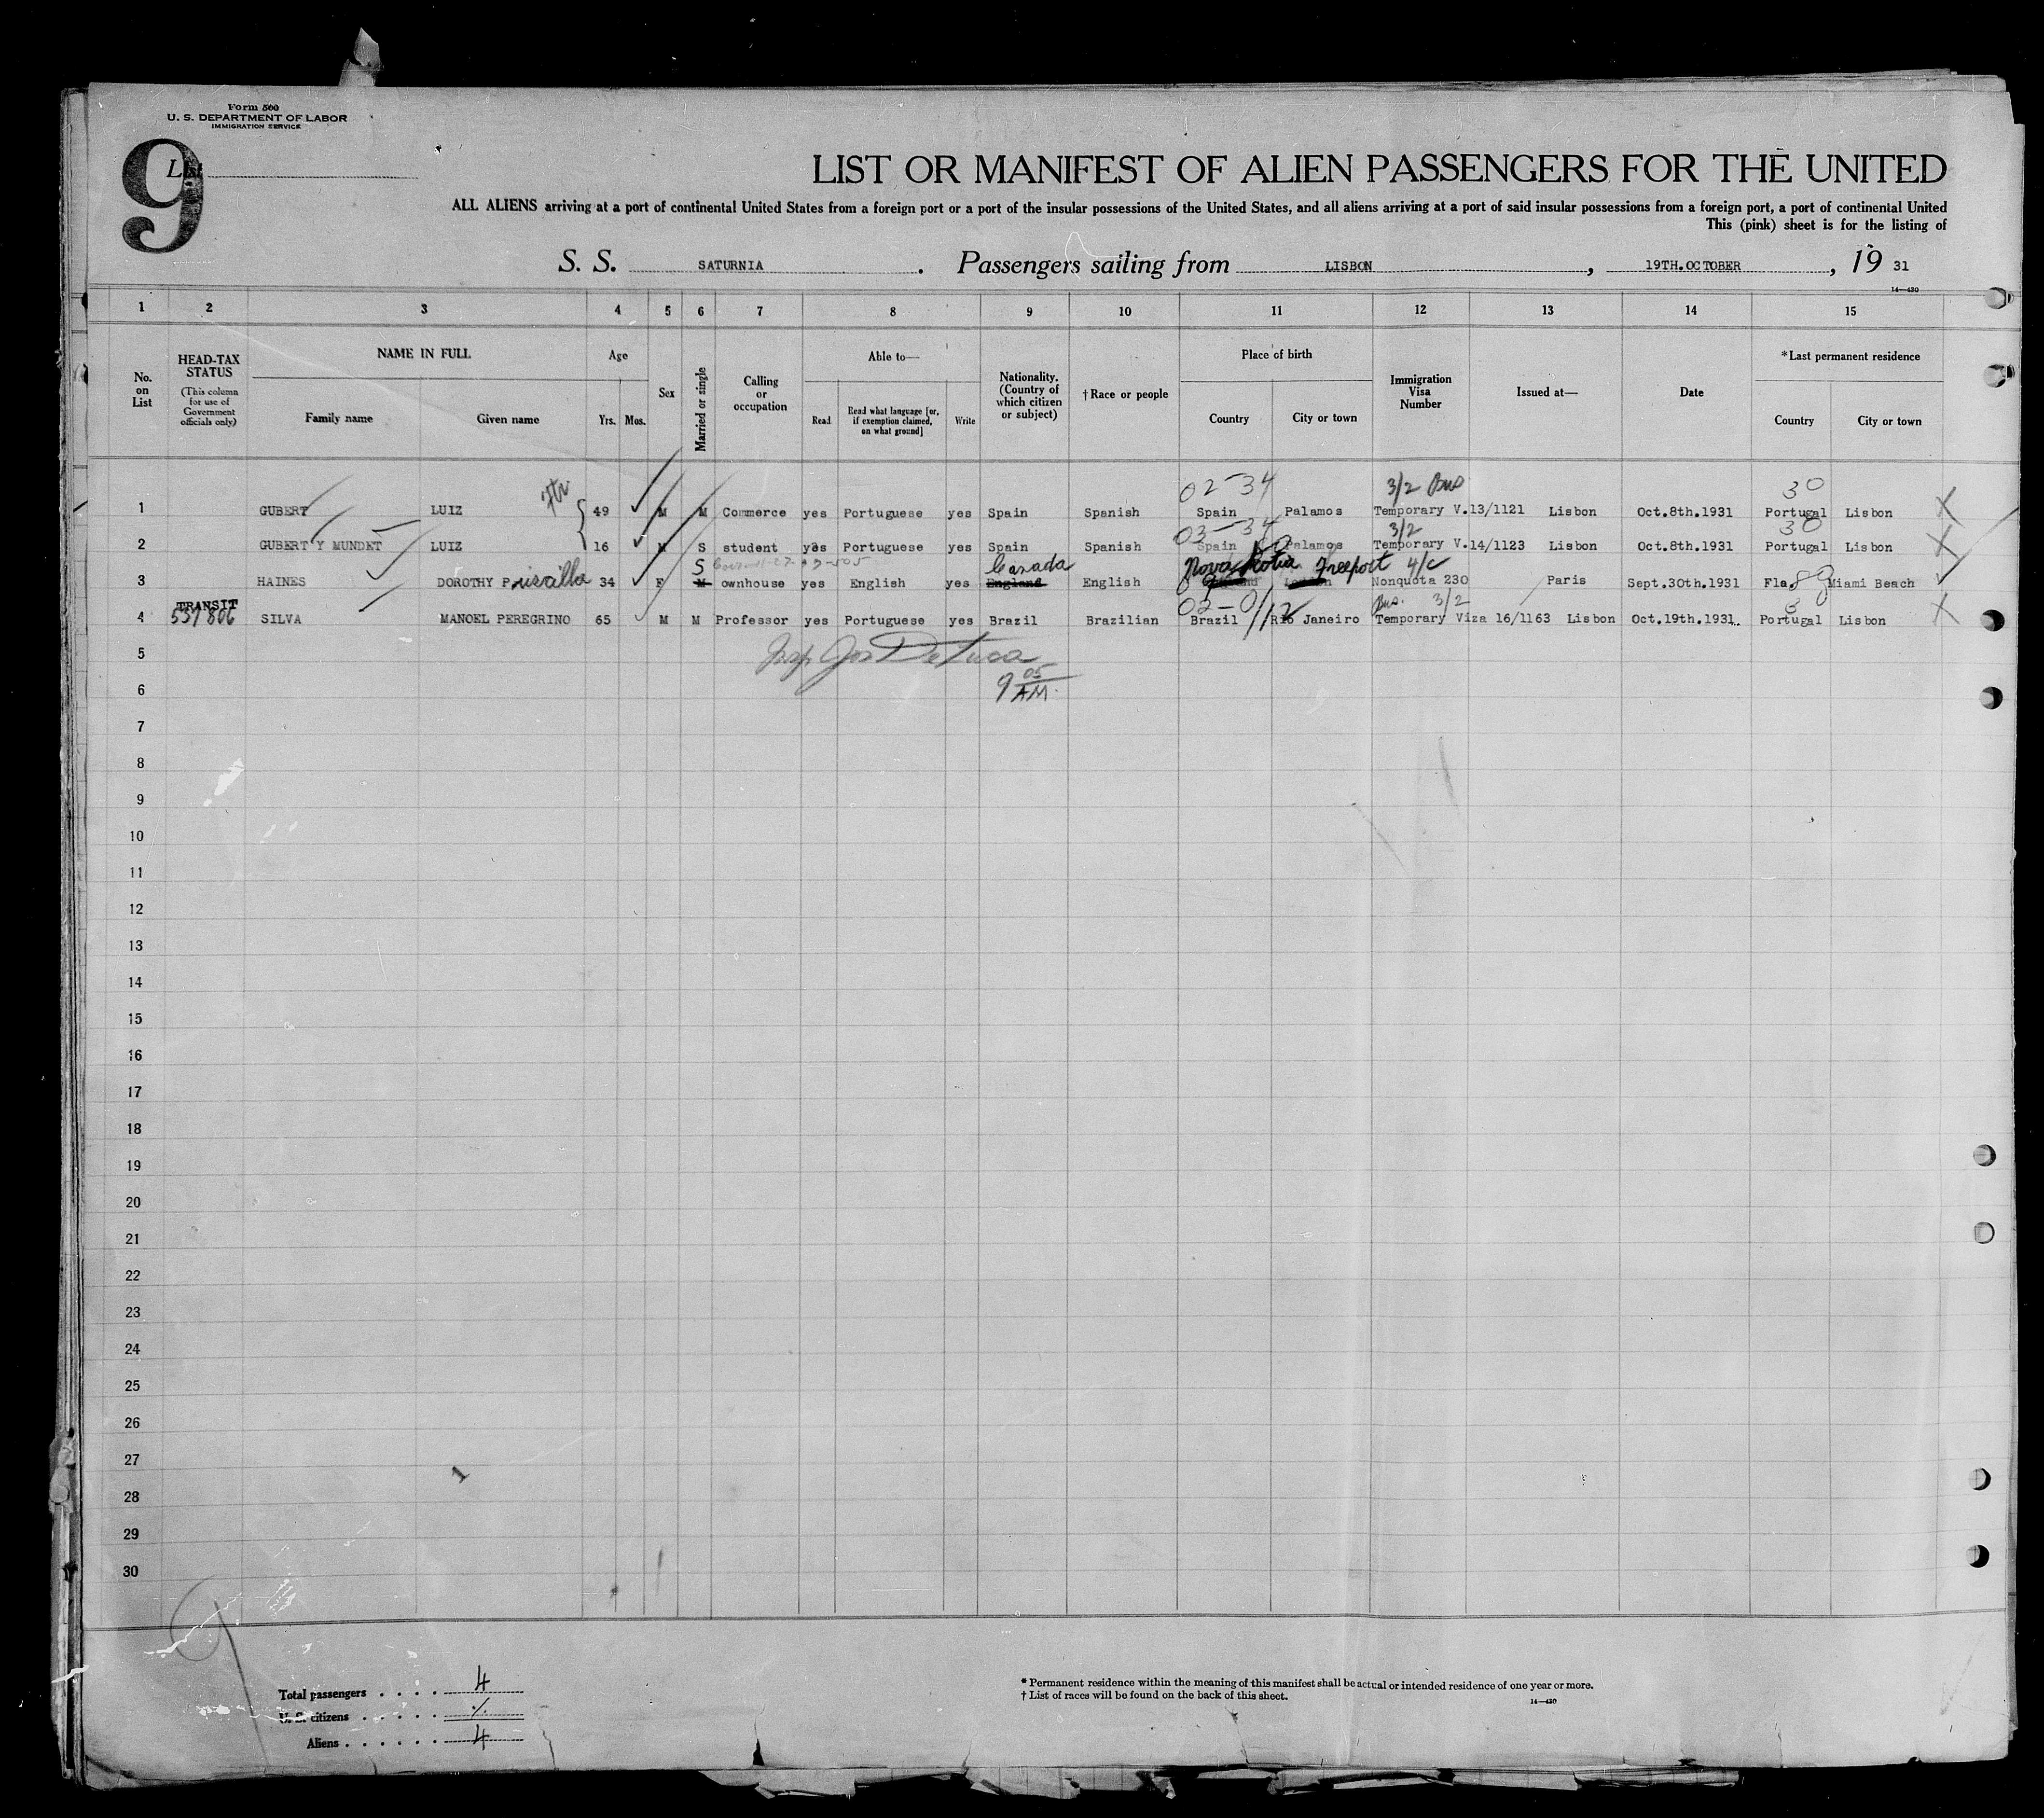 Form 500
U. S. DEPARTMENT OF LABOR
IMMIGRATION SERVICE
9
List
LIST OR MANIFEST OF ALIEN PASSENGERS FOR THE UNITED
ALL ALIENS arriving at a port of continental United States from a foreign port or a port of the insular possessions of the United States, and all aliens arriving at a port of said insular possessions from a foreign port, a port of continental United
This (pink) sheet is for the listing of
S. S. SATURNIA . Passengers sailing from LISBON , 19TH.OCTOBER , 19 31
14—430
1 2 3 4 5 6 7 8 9 10 11 12 13 14 15
No. on List
HEAD-TAX STATUS
(This column for use of Government officials only)
NAME IN FULL
Family name Given name
Age
Yrs. Mos.
Sex
Married or single
Calling or occupation
Able to—
Read Read what language [or, if exemption claimed, on what ground] Write
Nationality. (Country of which citizen or subject)
†Race or people
Place of birth
Country City or town
Immigration Visa Number
Issued at—
Date
*Last permanent residence
Country City or town
02-34 3/2 Bus 30
1 GUBERT LUIZ 49 M M Commerce yes Portuguese yes Spain Spanish Spain Palamos Temporary V.13/1121 Lisbon Oct.8th.1931 Portugal Lisbon X
03-34 3/2 30
2 GUBERT Y MUNDET LUIZ 16 M S student yes Portuguese yes Spain Spanish Spain Palamos Temporary V.14/1123 Lisbon Oct.8th.1931 Portugal Lisbon X
S Canada Nova Scotia Freeport 4/c
3 HAINES DOROTHY Priscilla 34 F M ownhouse yes English yes England English Nonquota 230 Paris Sept.30th.1931 Fla. Miami Beach
TRANSIT 02-01 Bus. 3/2
4 537806 SILVA MANOEL PEREGRINO 65 M M Professor yes Portuguese yes Brazil Brazilian Brazil Rio Janeiro Temporary Viza 16/1163 Lisbon Oct.19th.1931. Portugal Lisbon X
5
6 9 05 AM
7
8
9
10
11
12
13
14
15
16
17
18
19
20
21
22
23
24
25
26
27
28
29
30
Total passengers . . . . 4
U. S. citizens . . . . .
Aliens . . . . . . 4
* Permanent residence within the meaning of this manifest shall be actual or intended residence of one year or more.
† List of races will be found on the back of this sheet.
14—430